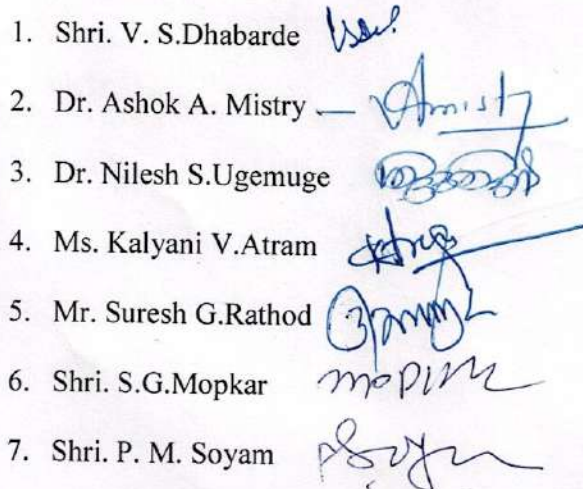 1. Shri. V. S.Dhabarde
2. Dr. Ashok A. Mistry — Amisty
3. Dr. Nilesh S.Ugemuge
4. Ms. Kalyani V.Atram
5. Mr. Suresh G.Rathod
6. Shri. S.G.Mopkar
7. Shri. P. M. Soyam